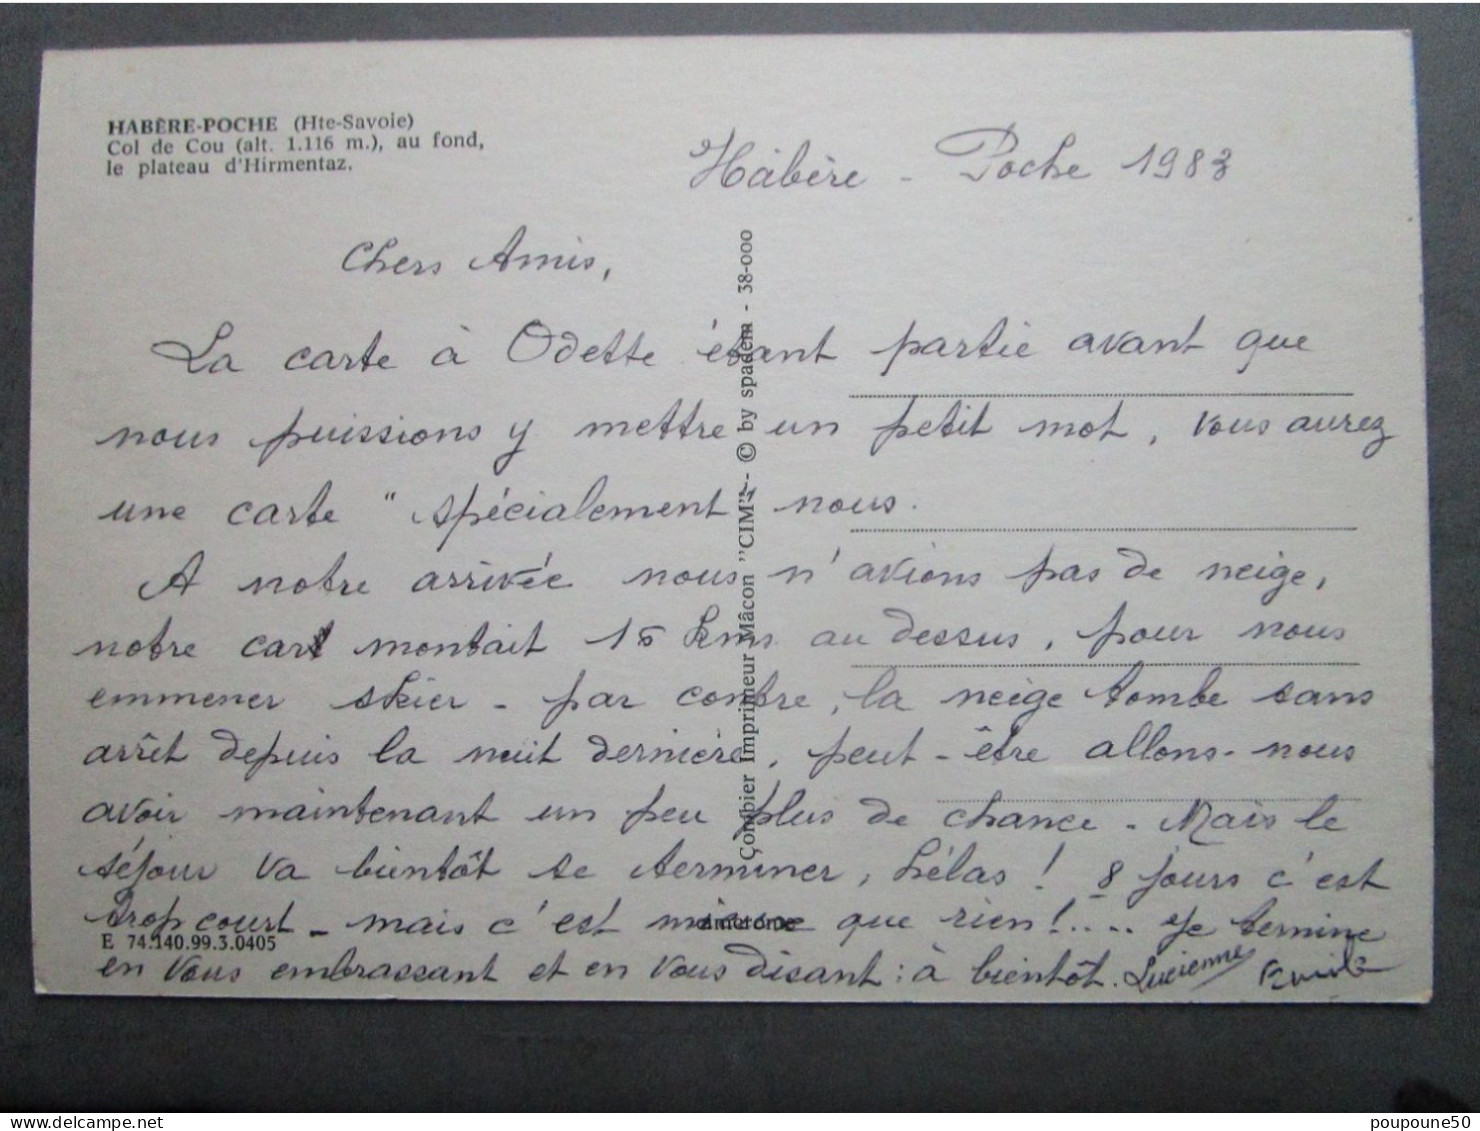 HABÈRE-POCHE (Hte-Savoie)
Col de Cou (alt. 1.116 m.), au fond,
le plateau d'Hirmentaz.
Habère - Poche 1983
Chers Amis,
La carte à Odette étant partie avant que
nous puissions y mettre un petit mot, vous aurez
une carte "spécialement" nous.
A notre arrivée nous n'avions pas de neige,
notre car montait 15 kms au dessus, pour nous
emmener skier - par contre, la neige tombe sans
arrêt depuis la nuit dernière, peut-être allons-nous
avoir maintenant un peu plus de chance - Mais le
séjour va bientôt se terminer, hélas ! 8 jours c'est
trop court - mais c'est mieux que rien !.... Je termine
en vous embrassant et en vous disant : à bientôt. Lucienne
Combier Imprimeur Mâcon "CIM" - © by spadem - 38-000
E 74.140.99.3.0405
poupoune50